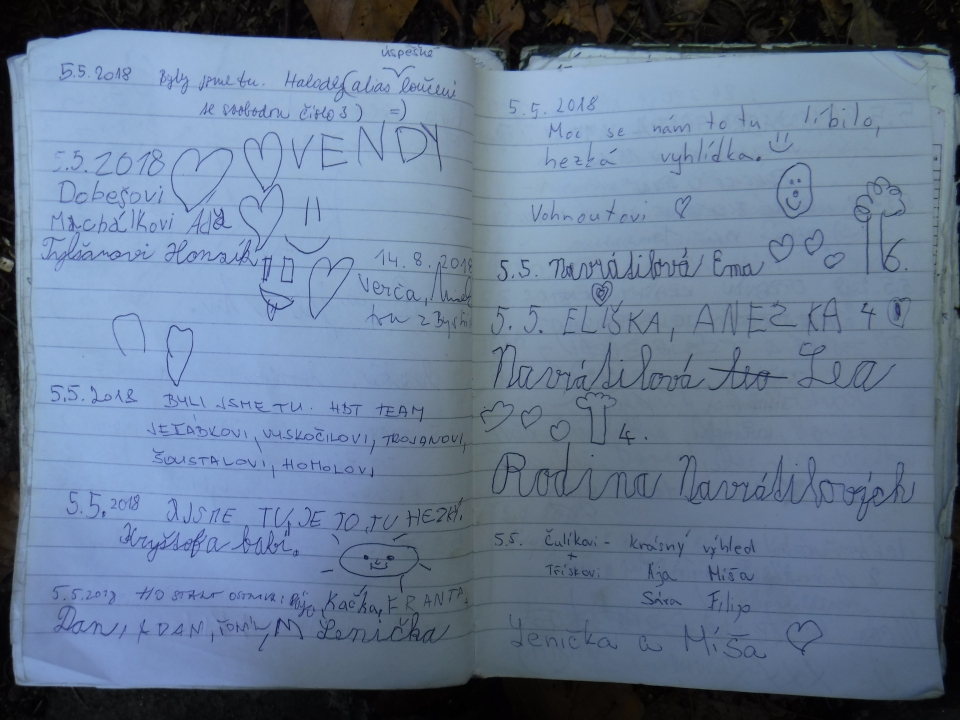 úspěšné
5.5.2018 Byly jsme tu. (alias loučení
se svobodou číslo 3) =)
VENDY
5.2018
Dobešovi
Machálkovi Ada
Honzík
14.8.2018
Verča,
tu z
5.5.2018 BYLI JSME TU. HDT TEAM
JEŘÁBKOVI, VYSKOČILOVI, TROJANOVI,
ŠOUSTALOVI, HOMOLOVI
5.5.2018 JSME TU, JE TO TU HEZKÝ.
Kryštof a babi.
5.5.2018 Kačka, FRANTA,
Dan, ADAN, TOMÍK, M Lenička
5.5.2018
Moc se nám to tu líbilo,
hezká vyhlídka.
Vohnoutovi
5.5. Navrátilová Ema 6.
5.5. ELIŠKA, ANEŽKA 4
Navrátilová Lea
4.
Rodina Navrátilových
5.5. Čulíkovi - krásný výhled
+
Třískovi Kája Míša
Sára Filip
Lenička a Míša